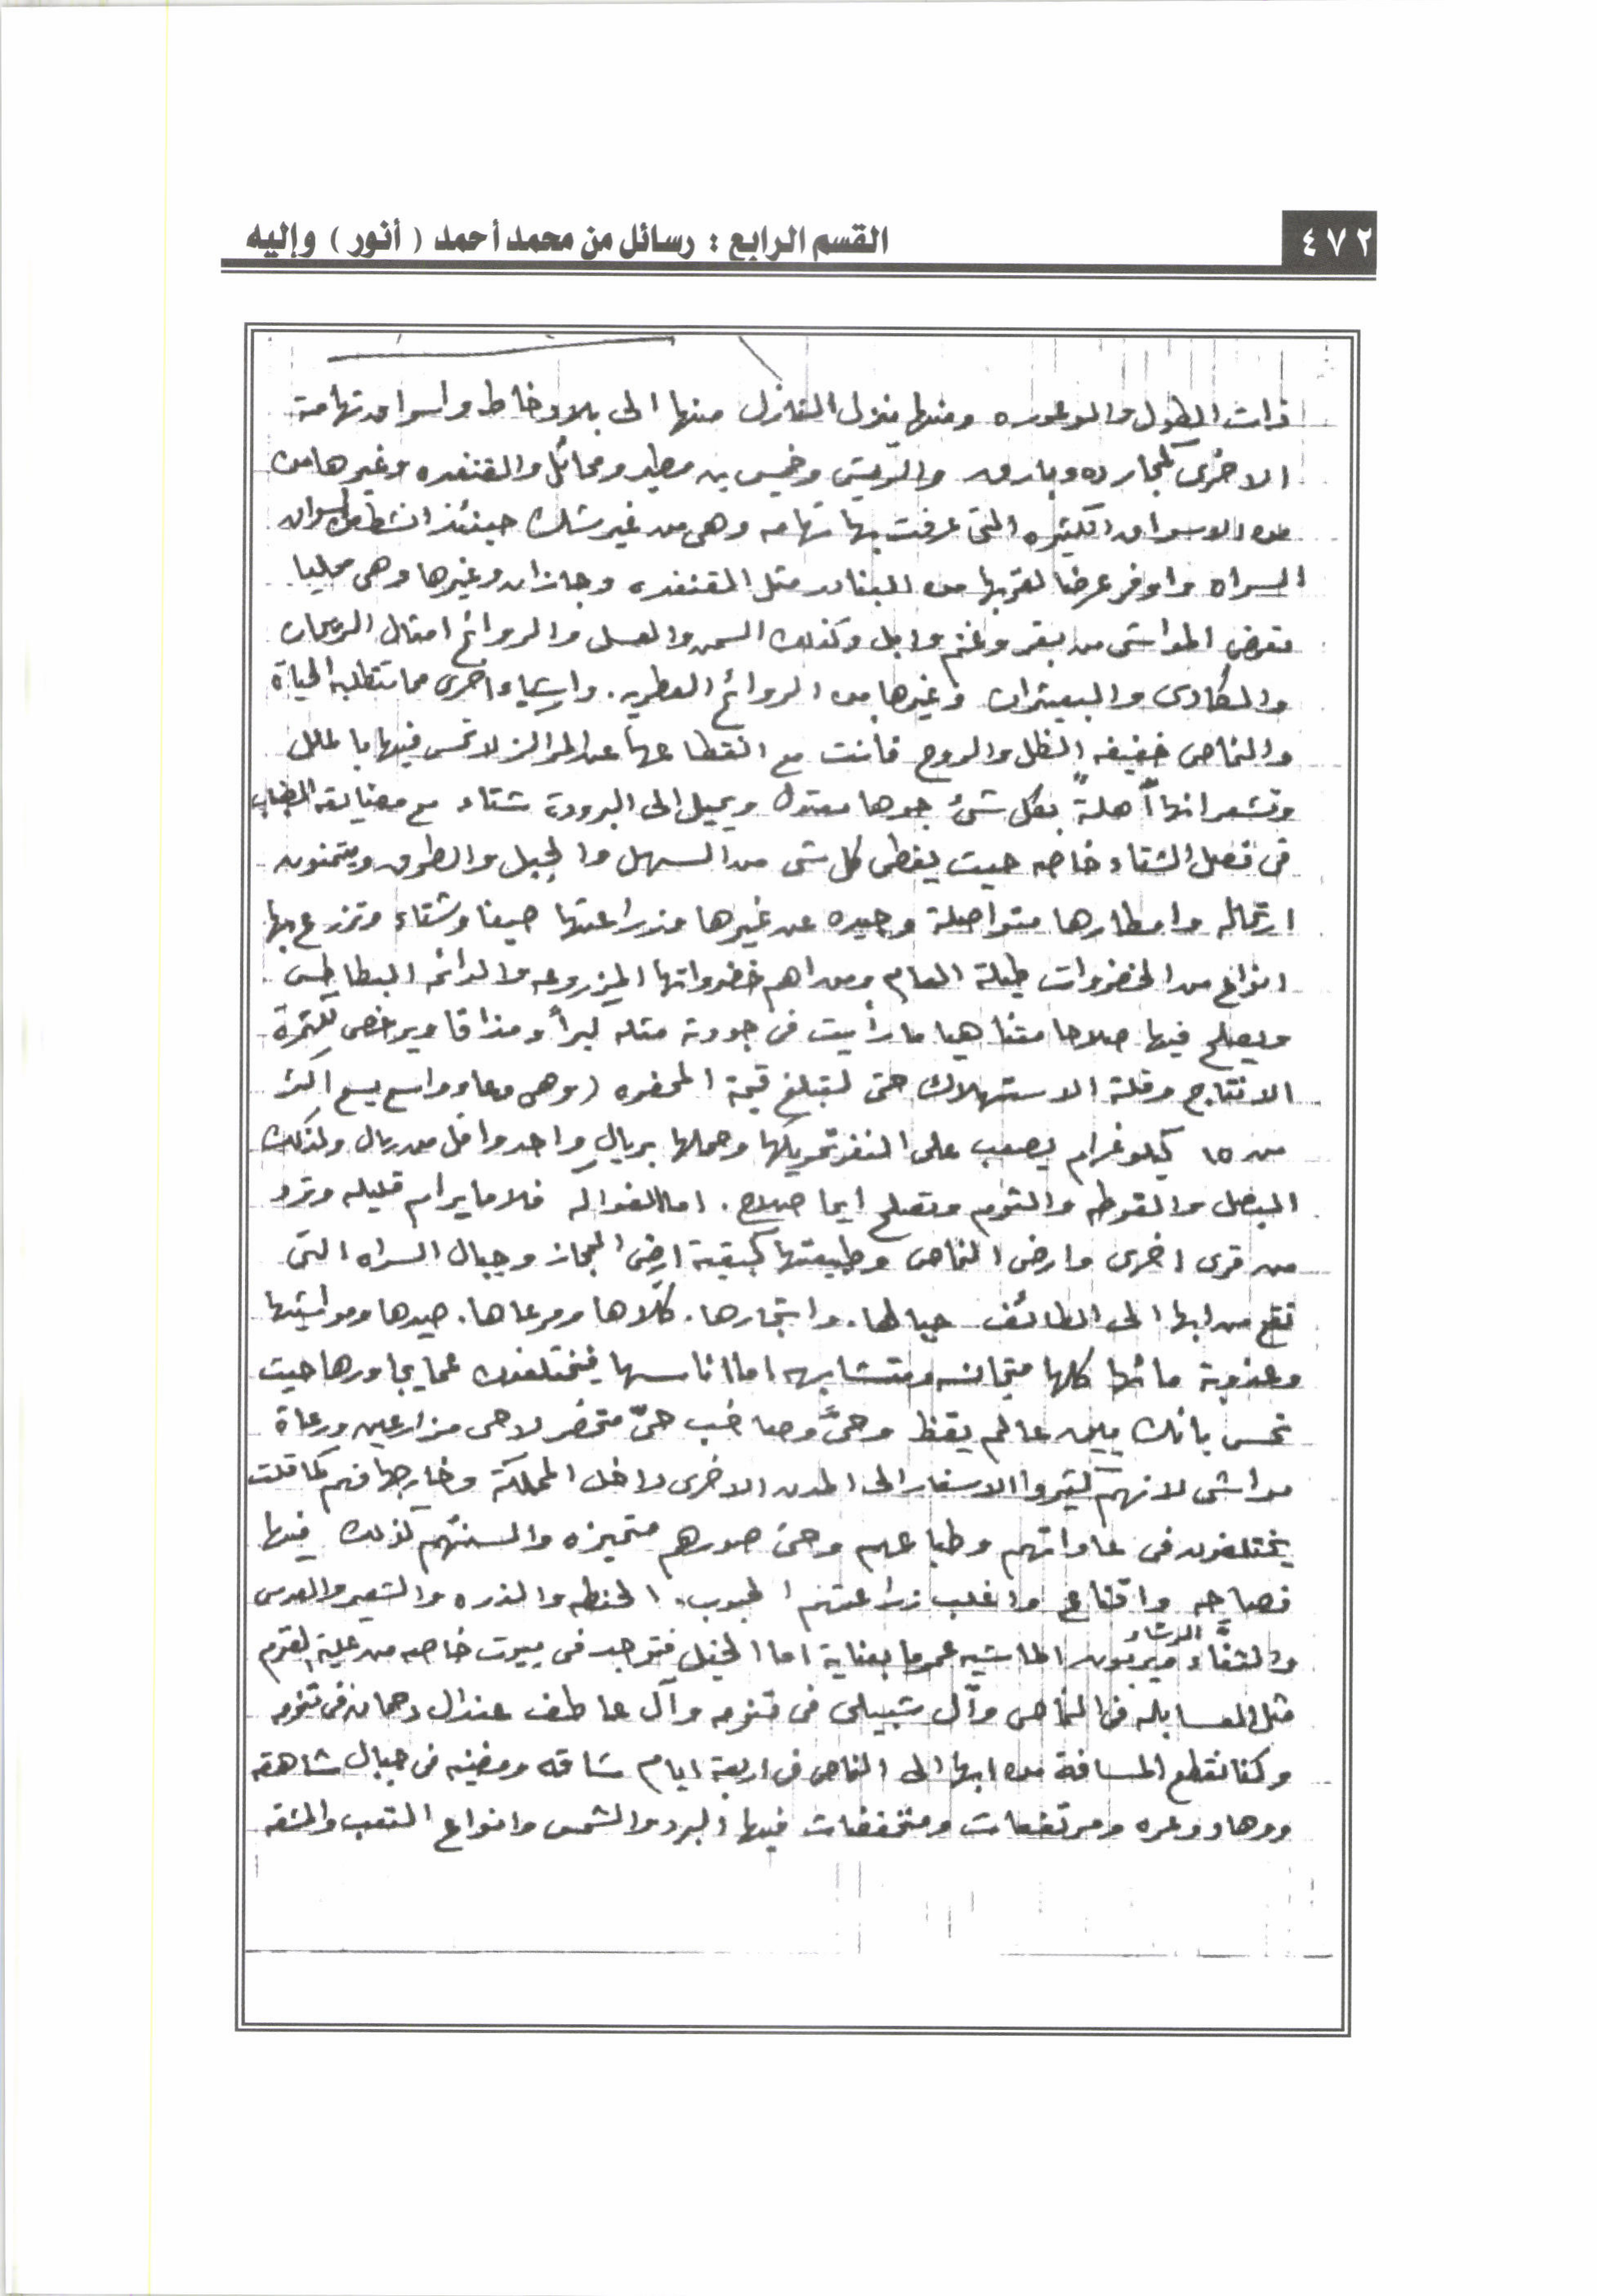 ٤٧٢
القسم الرابع : رسائل من محمد أحمد ( أنور ) وإليه
ذات الطول والوعوره ومنها ينزل النازل منها الى بلاد خاط واسواق تهامة
الاخرى كالمجارده وبارق والريش وخميس بن مطير ومحائل والقنفده وغيرها من
من الاسواق الكثيره التى عرفت بها تهامه وهى من غير شك حينئذ انشط من اسواق
السراه واوفر عرضا لقربها من البنادر مثل القنفده وجازان وغيرها وهى محليا
تعرض المواشى من بقر وغنم وابل وكذلك السمن والعسل والروائح امثال الريحان
والكادى والبعيثران وغيرها من الروائح العطريه . واشياء اخرى مما تتطلبه الحياة
والنماص خفيفه الظل والروح فأنت مع انقطاعها عن المراكز لاتحس فيها بالملل
وتشعر انها آهلةً بكل شئ جوها معتدل ويميل الى البرودة شتاء مع مضايقه الضباب
فى فصل الشتاء خاصه حيث يغطى كل شى من السهل والجبل والطرق ويتمنون
ارتحاله وامطارها متواصلة وجيده عن غيرها وزراعتها صيفا وشتاء وتزرع بها
انواع من الخضروات طيلة العام ومن اهم خضرواتها المزروعه والدائمه البطاطس
ويصلح فيها صلاحا متناهيا ما رأيت فى جودته مثله كبراً ومذاقا ويرخص لكثرة
الانتاج وقلة الاستهلاك حتى لتبلغ قيمة المحفره ( وهى وعاء واسع يسع اكثر
من ١٥ كيلوغرام يصعب على النفر تحريكها وحملها بريال واحد واقل من ريال وكذلك
البصل والقوطه والثوم وتصلح ايما صلاح . اما الفواكه فلا مايرام قليله وترد
من قرى اخرى وارض النماص وطبيعتها كبقية ارض الحجاز وجبال السراه التى
تقع من ابها الى الطائف جبالها . واشجارها . كلأها ومرعاها . صيدها ومواشيها
وعذوبة مائها كلها متجانسه ومتشابهه اما اناسها فيختلفون عما يجاورها حيث
تحس بانك بين عالم يقظ وحىّ وصاخب حىّ متحضر لا حى مزارعين ورعاة
مواشى لانهم كثيروا الاسفار الى المدن الاخرى داخل المملكة وخارجها فهم كما قلت
يختلفون فى عاداتهم وطباعهم وحتى صورهم متميزه والسنتهم كذلك فيها
فصاحه واقناع واغلب زراعتهم الحبوب . الحنطه والذره والشعير والعدس
والثفّاء الرشاد ويربون الماشيه عموما بعناية اما الخيل فتوجد فى بيوت خاصه من علية القوم
مثل العسابله فى النماص وآل شبيلى فى تنومه وآل عاطف عندال دحمان فى تنومه
وكنا نقطع المسافة من ابها الى النماص فى اربعة ايام شاقه ومضنيه فى جبال شاهقه
ووهاد وعره ومرتفعات ومنخفضات فيها البرد والشمس وانواع التعب والمشقه